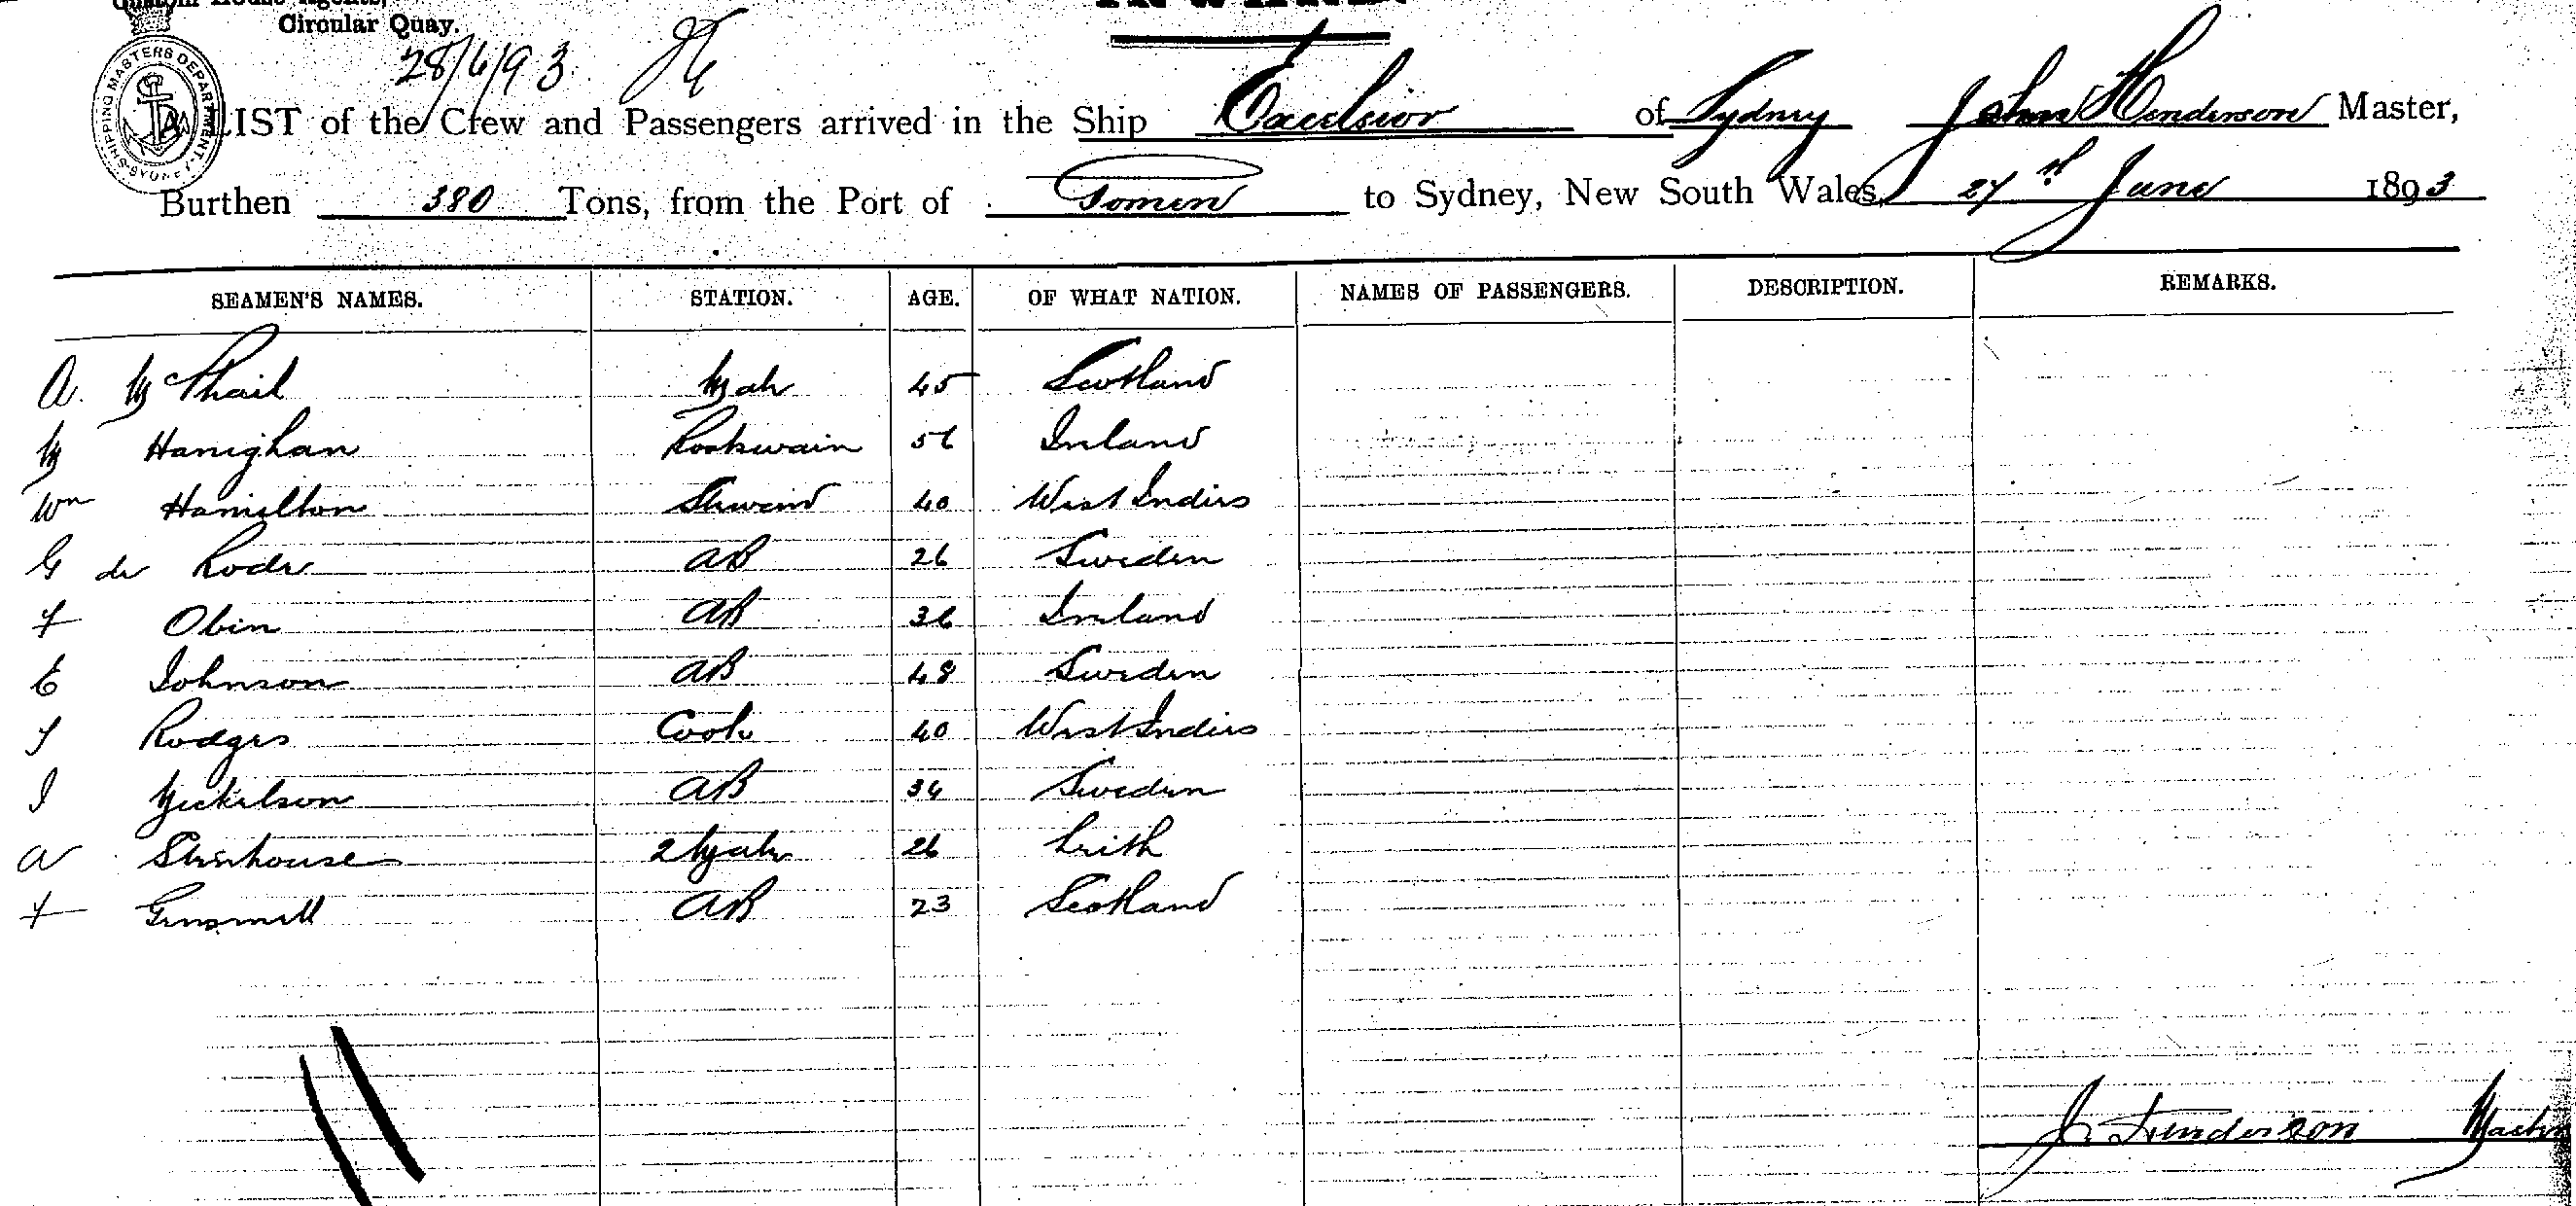 Custom House Agents,
Circular Quay.
28/6/93
SHIPPING MASTERS DEPARTMENT. SYDNEY
A LIST of the Crew and Passengers arrived in the Ship Excelsior of Sydney John Henderson Master,
Burthen 380 Tons, from the Port of to Sydney, New South Wales, 27th June 1893
SEAMEN'S NAMES. STATION. AGE. OF WHAT NATION. NAMES OF PASSENGERS. DESCRIPTION. REMARKS.
A. McPhail Mate 45 Scotland
M Hanighan 56 Ireland
Wm Hamilton Steward 40 West Indies
G de Rode AB 26 Sweden
F Obin AB 36 Ireland
E Johnson AB 48 Sweden
Rodgers Cook 40 West Indies
AB Sweden
A Stenhouse 2 Mate 26 Leith
F AB 23 Scotland
11
J. Henderson Master